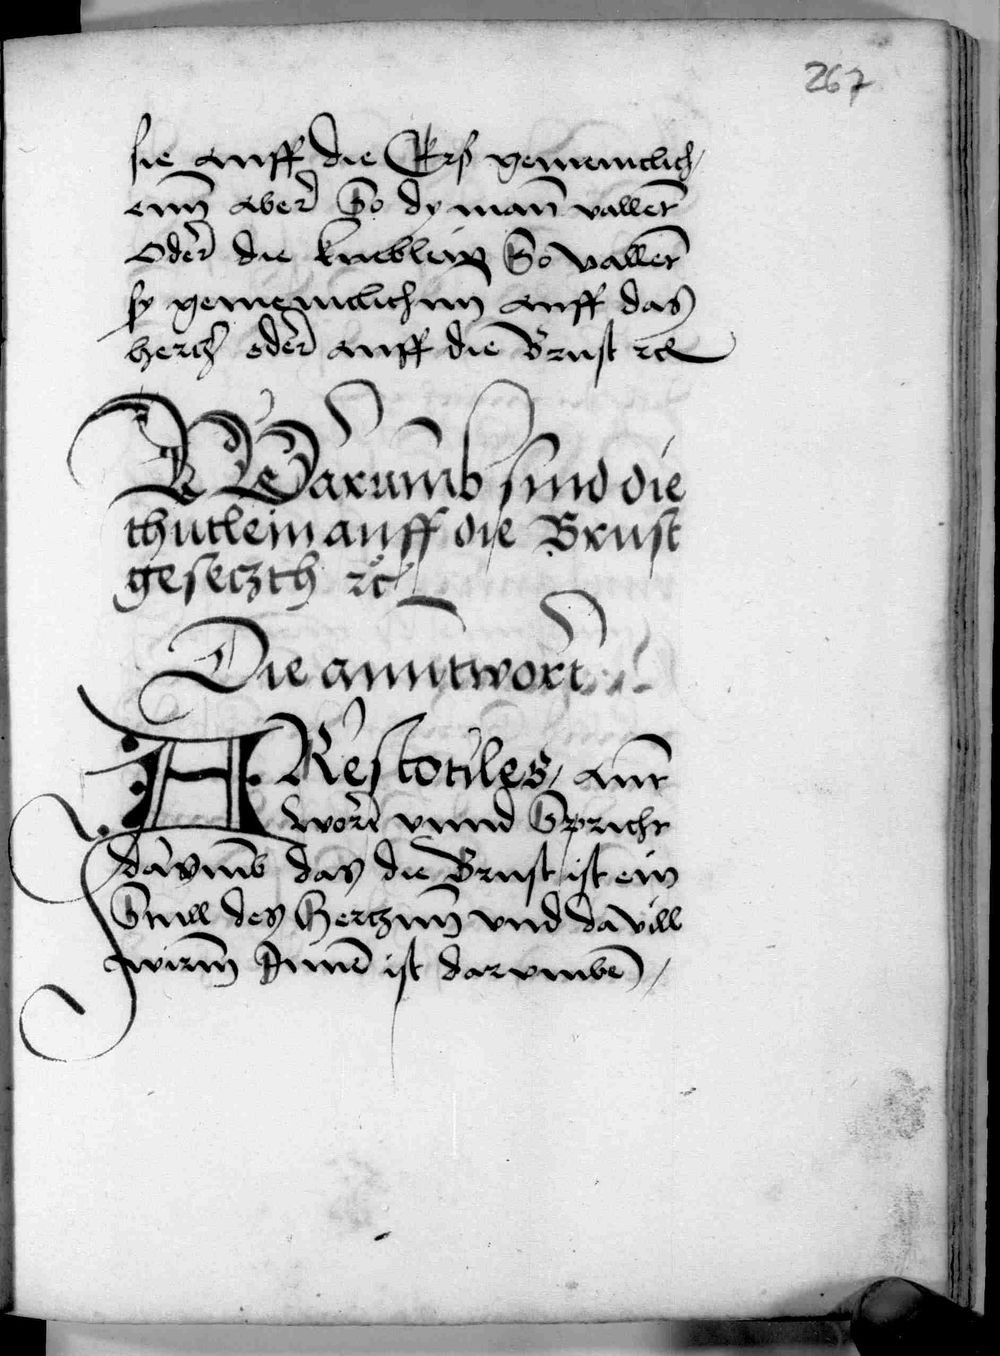 267
sie auff die Ers gemeinclich
enn aber So dy mann vallen
Oder die kneblein So vallen
sy gemeinclichnn auff das
hercz oder auff die Brust rc
WArumb sind die
thutlein auff die Brust
geseczth rc
Die anntwort
AResTotiles / annt
wort vnnd Spricht
darumb das die Brust ist ein
Stull des Hercznn vnd da vill
wirm Innen ist darumben /